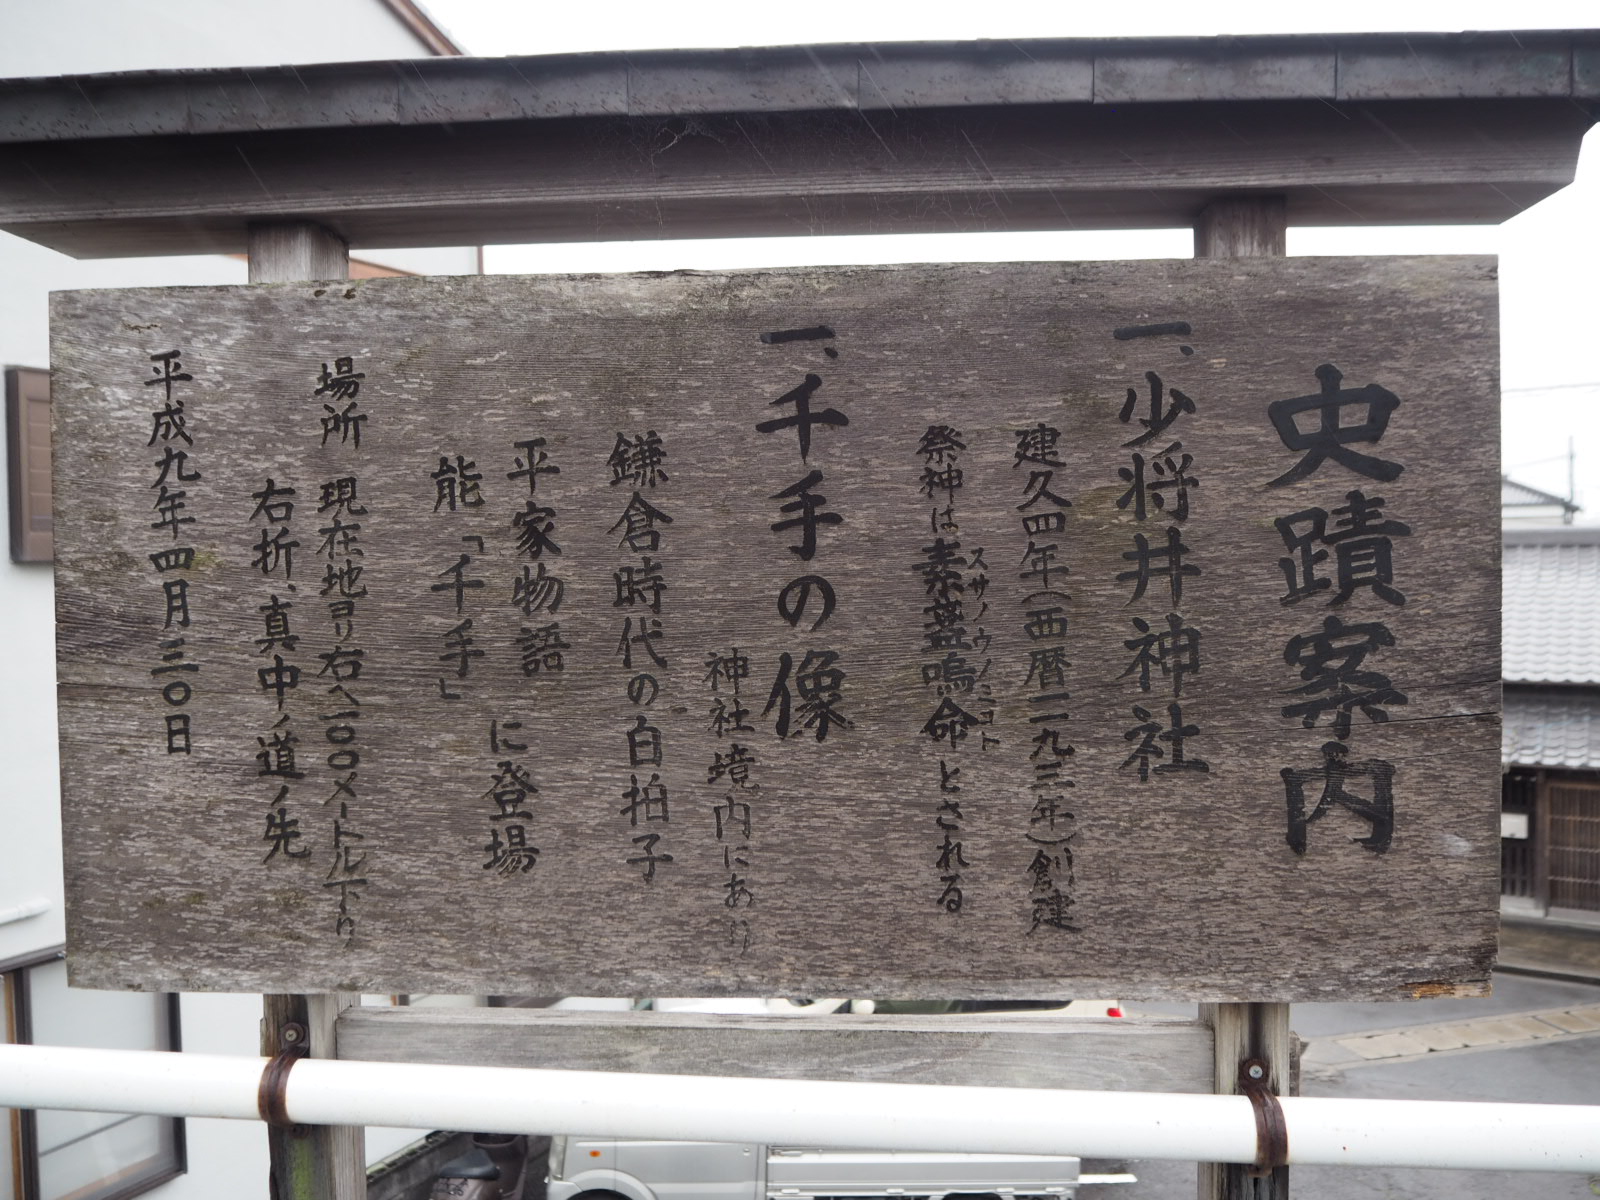 史蹟案内
一、少将井神社
建久四年(西暦一一九三年)創建
スサノウノミコト
祭神は素盞嗚命とされる
一、千手の像
神社境内にあり
鎌倉時代の白拍子
平家物語
能「千手」
に登場
場所 現在地ヨリ右へ一〇〇メートル下り
右折、真中ノ道ノ先
平成九年四月三〇日